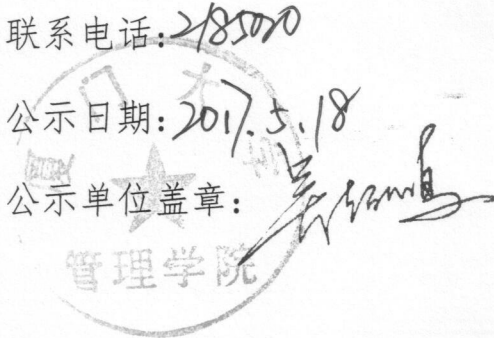 联系电话:2185000
公示日期:2017.5.18
公示单位盖章:
厦门大学
管理学院